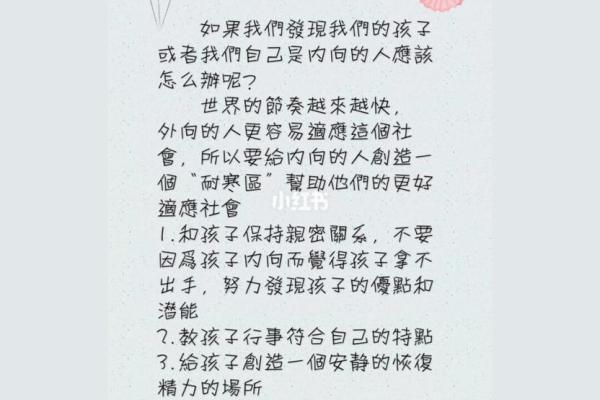 如果我們發現我們的孩子
或者我們自己是内向的人應該
怎么辦呢?
世界的節奏越來越快，
外向的人更容易適應這個社
會，所以要給内向的人創造一
個“耐寒區”幫助他們的更好
適應社會
小红书
1.和孩子保持親密關系，不要
因爲孩子内向而覺得孩子拿不
出手，努力發現孩子的優點和
潜能
2.教孩子行事符合自己的特點
3.給孩子創造一個安静的恢復
精力的場所